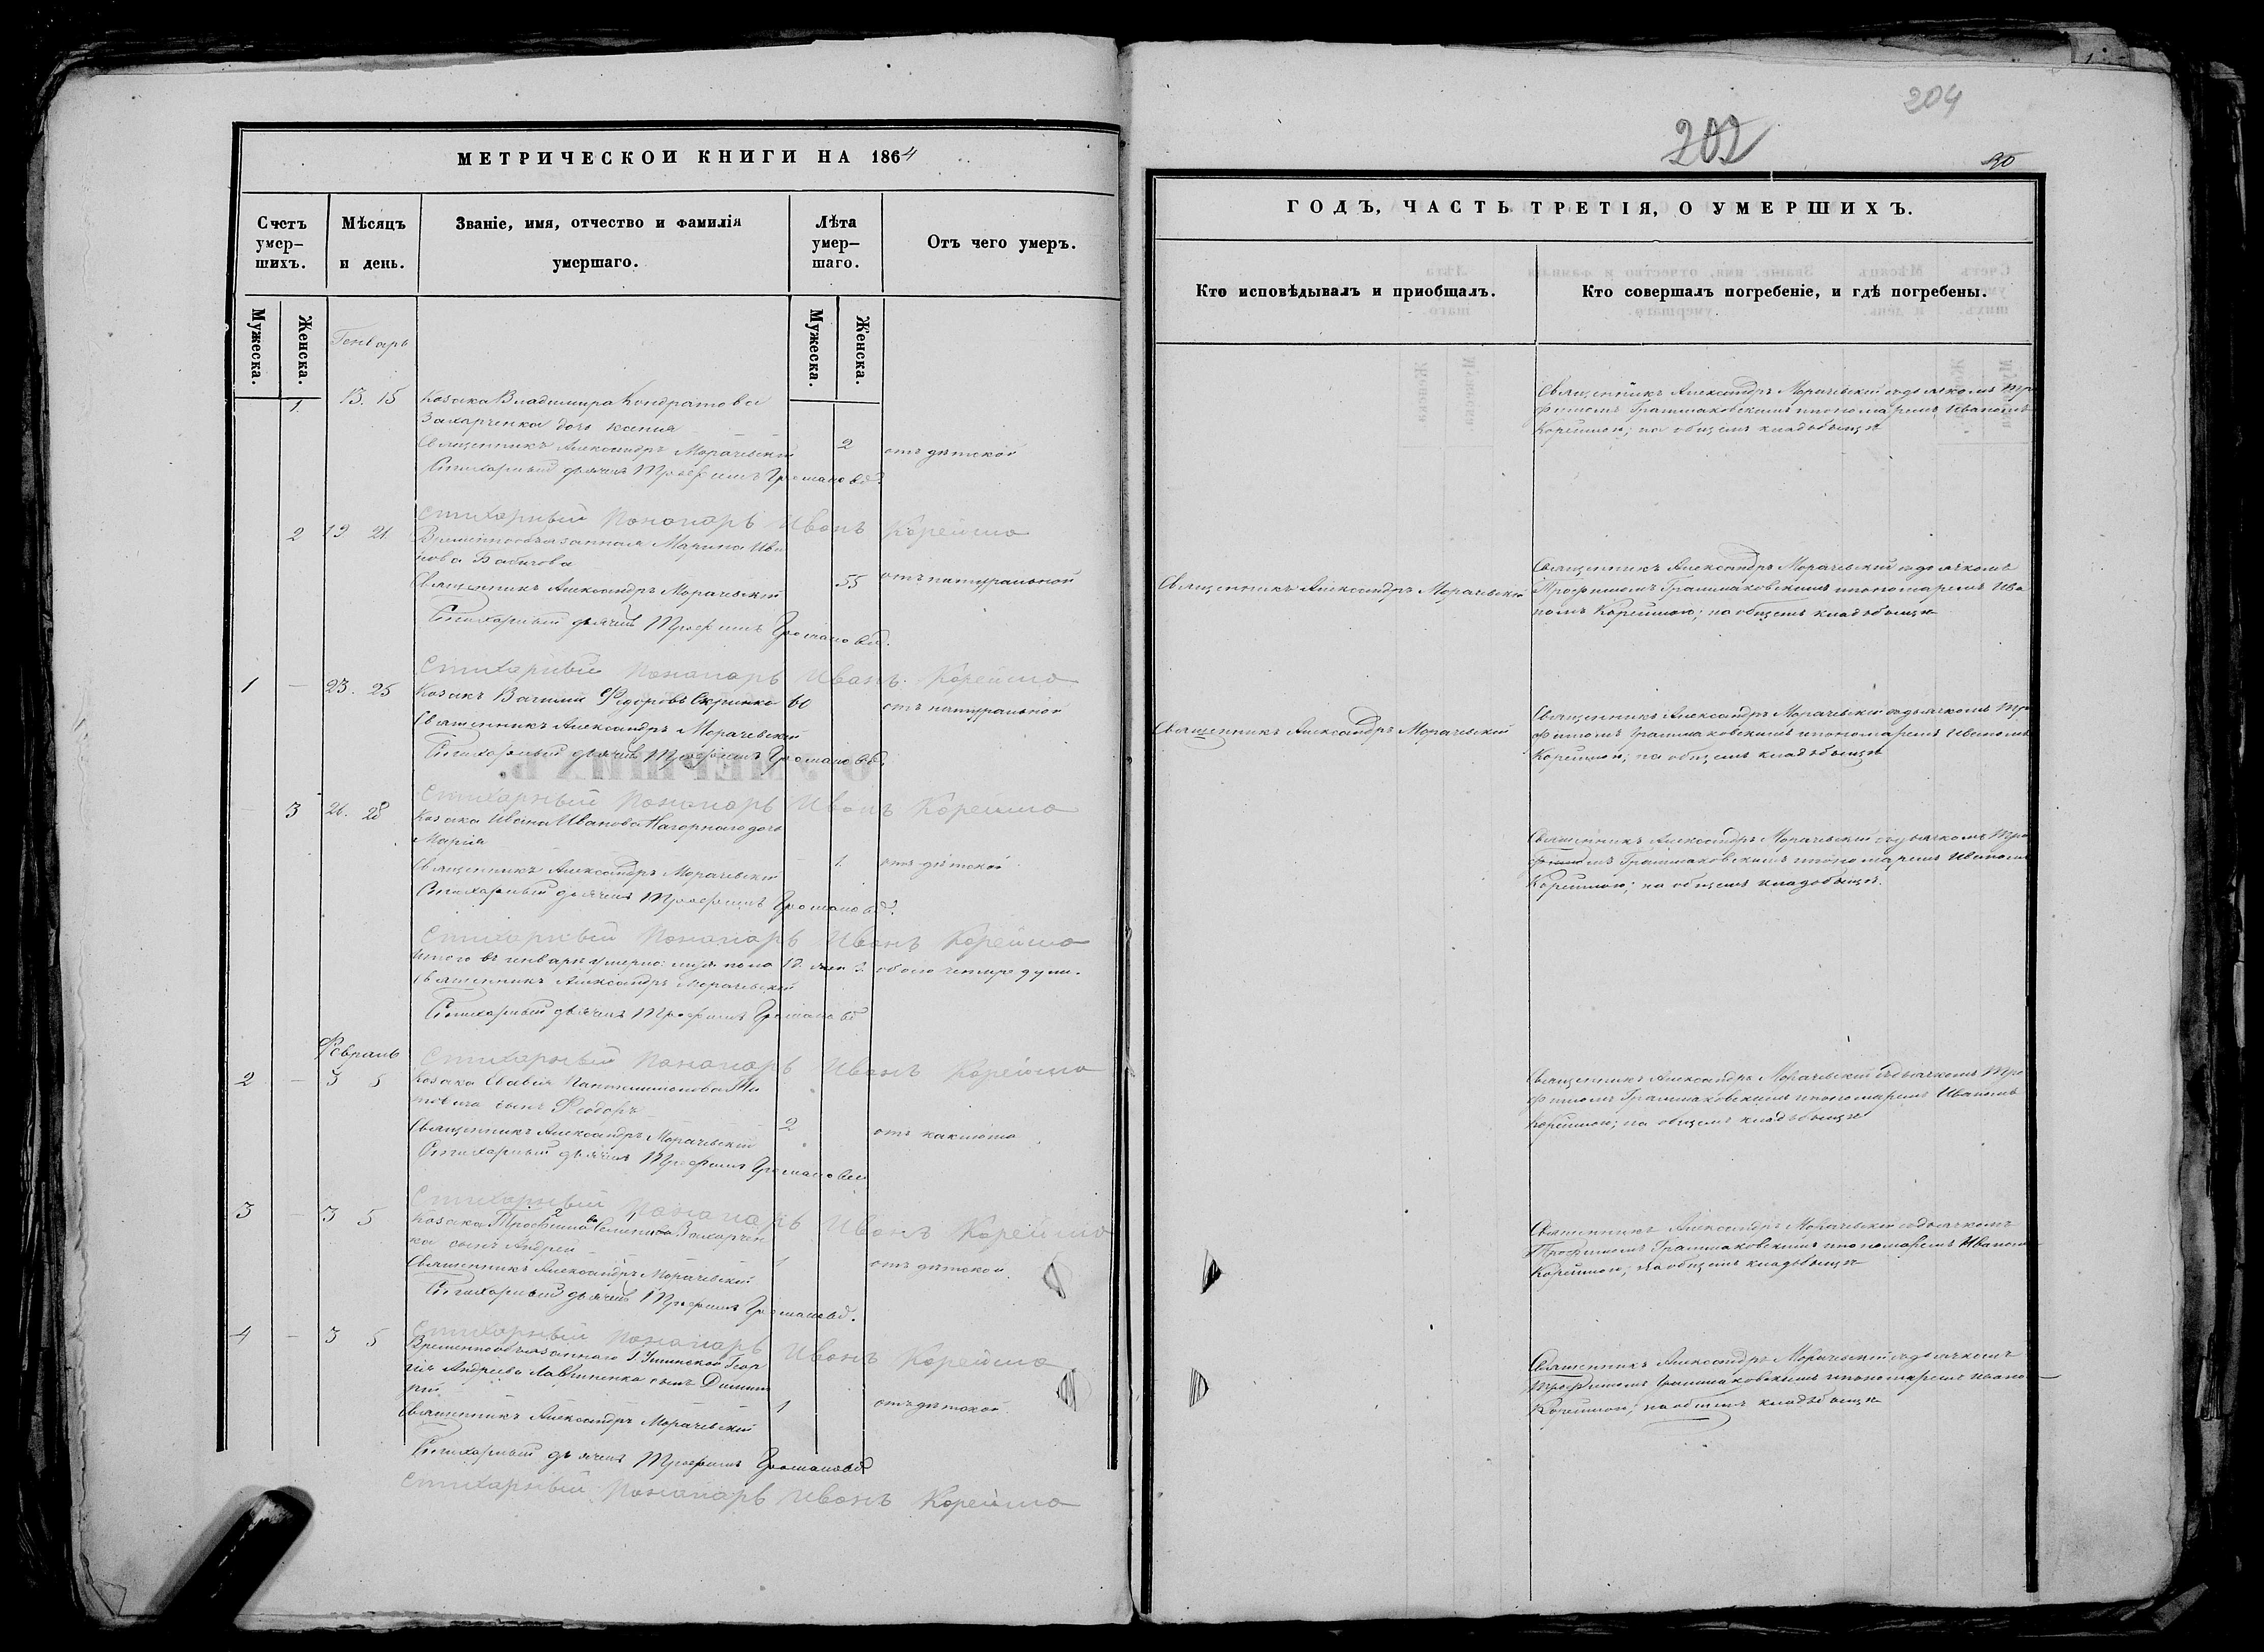 МЕТРИЧЕСКОИ КНИГИ НА 1864
Счетъ умер-шихъ.
Мѣсяцъ и день.
Званіе, имя, отчество и фамилія умершаго.
Лѣта умер-шаго.
Отъ чего умеръ.
Мужеска.
Женска.
Мужеска.
Женска.
Генварь
1. 13. 15 Козака Владимира Кондратова
Захарченка дочь
Священникъ Александръ Морачевскій 2 отъ дѣтской
Стихарный дьячекъ Трофимъ
Стихарный Пономарь Иванъ Корейша
2 19. 21 Временнообязанная Марина Ива
нова Бабичова
Священникъ Александръ Морачевскій 55 отъ натуральной
Стихарный дьячекъ Трофимъ
Стихарный Пономарь Иванъ Корейша
1 — 23. 25 Козакъ Федоровъ 60 отъ натуральной
Священникъ Александръ Морачевскій
Стихарный дьячекъ Трофимъ
Стихарный Пономарь Иванъ Корейша
3 26. 28 Козака Ивана Иванова Нагорнаго дочь
Марія
Священникъ Александръ Морачевскій 1. отъ дѣтской
Стихарный дьячекъ Трофимъ
Стихарный Пономарь Иванъ Корейша
Итого въ генварѣ умерло: муж. пола 1. жен 3. обоего четыре души.
Священникъ Александръ Морачевскій
Стихарный дьячекъ Трофимъ
Февраль
Стихарный Пономарь Иванъ Корейша
2 — 3 5 Козака Саввы
сынъ Ѳеодоръ
Священникъ Александръ Морачевскій 2 отъ
Стихарный дьячекъ Трофимъ
Стихарный Пономарь Иванъ Корейша
3 — 3 5 Козака Трофима Семенова Захарчен
ка сынъ Андрей
Священникъ Александръ Морачевскій 1 отъ дѣтской
Стихарный дьячекъ Трофимъ
Стихарный Пономарь Иванъ Корейша
4 — 3 5 Временнообязаннаго Геор
гія Андреева сынъ Димит
рій
Священникъ Александръ Морачевскій 1 отъ дѣтской
Стихарный дьячекъ Трофимъ
Стихарный Пономарь Иванъ Корейша
204
202
ГОДЪ, ЧАСТЬ ТРЕТІЯ, О УМЕРШИХЪ.
Кто исповѣдывалъ и приобщалъ.
Кто совершалъ погребеніе, и гдѣ погребены.
Священникъ Александръ Морачевскій съ дьячкомъ Тро
фимомъ и пономаремъ Иваномъ
Корейшою; на общемъ кладбищѣ
Священникъ Александръ Морачевскій
Священникъ Александръ Морачевскій съ дьячкомъ
Трофимомъ и пономаремъ Ива
номъ Корейшою; на общемъ кладбищѣ
Священникъ Александръ Морачевскій
Священникъ Александръ Морачевскій съ дьячкомъ Тро
фимомъ и пономаремъ Иваномъ
Корейшою; на общемъ кладбищѣ
Священникъ Александръ Морачевскій съ дьячкомъ Тро
фимомъ и пономаремъ Иваномъ
Корейшою; на общемъ кладбищѣ.
Священникъ Александръ Морачевскій съ дьячкомъ Тро
фимомъ и пономаремъ Иваномъ
Корейшою; на общемъ кладбищѣ
Священникъ Александръ Морачевскій съ дьячкомъ
Трофимомъ и пономаремъ Иваномъ
Корейшою; на общемъ кладбищѣ
Священникъ Александръ Морачевскій съ дьячкомъ
Трофимомъ и пономаремъ Ивано
Корейшою; на общемъ кладбищѣ